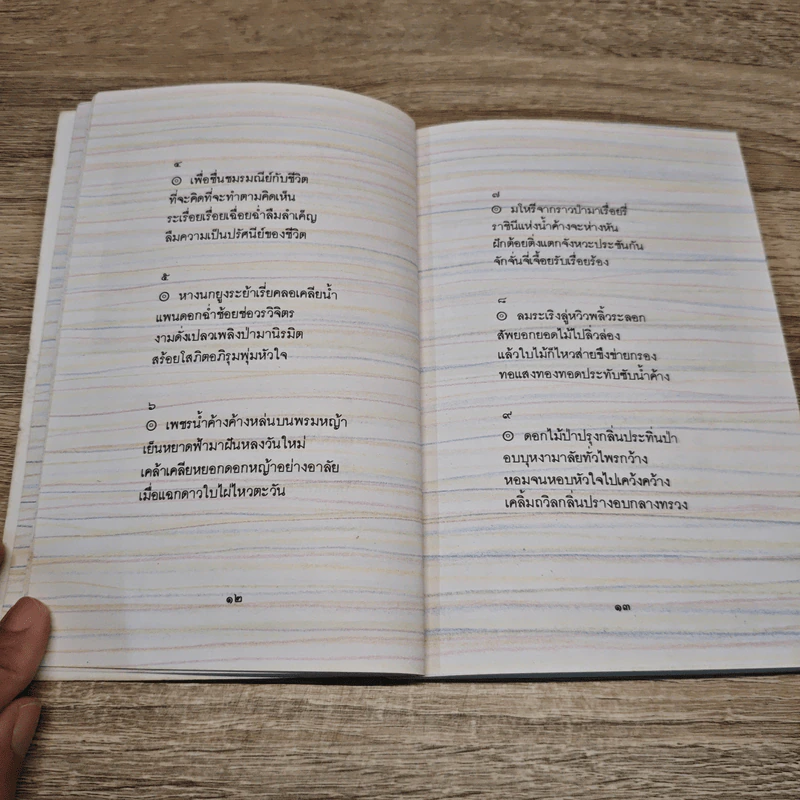 ๔
๏ เพื่อชื่นชมรมณีย์กับชีวิต
ที่จะคิดที่จะทำตามคิดเห็น
ระเรื่อยเรื่อยเฉื่อยฉ่ำลืมลำเค็ญ
ลืมความเป็นปรัศนีย์ของชีวิต
๕
๏ หางนกยูงระย้าเรี่ยคลอเคลียน้ำ
แพนดอกฉ่ำช้อยช่อวรวิจิตร
งามดั่งเปลวเพลิงป่ามานิรมิต
สร้อยโสภิตอภิรุมพุ่มหัวใจ
๖
๏ เพชรน้ำค้างค้างหล่นบนพรมหญ้า
เย็นหยาดฟ้ามาฝันหลงวันใหม่
เคล้าเคลียหยอกดอกหญ้าอย่างอาลัย
เมื่อแฉกดาวใบไผ่ไหวตะวัน
๑๒
๗
๏ มโหรีจากราวป่ามาเรื่อยรี่
ราชินีแห่งน้ำค้างจะห่างหัน
ฝักต้อยติ่งแตกจังหวะประชันกัน
จักจั่นจี่เจื้อยรับเรื่อยร้อง
๘
๏ ลมระเริงลู่หวิวพลิ้วระลอก
สัพยอกยอดไม้ไปลิ่วล่อง
แล้วใบไม้ก็ไหวส่ายขึงข่ายกรอง
ทอแสงทองทอดประทับซับน้ำค้าง
๙
๏ ดอกไม้ป่าปรุงกลิ่นประทิ่นป่า
อบบุหงามาลัยทั่วไพรกว้าง
หอมจนหอบหัวใจไปเคว้งคว้าง
เคลิ้มถวิลกลิ่นปรางอบกลางทรวง
๑๓